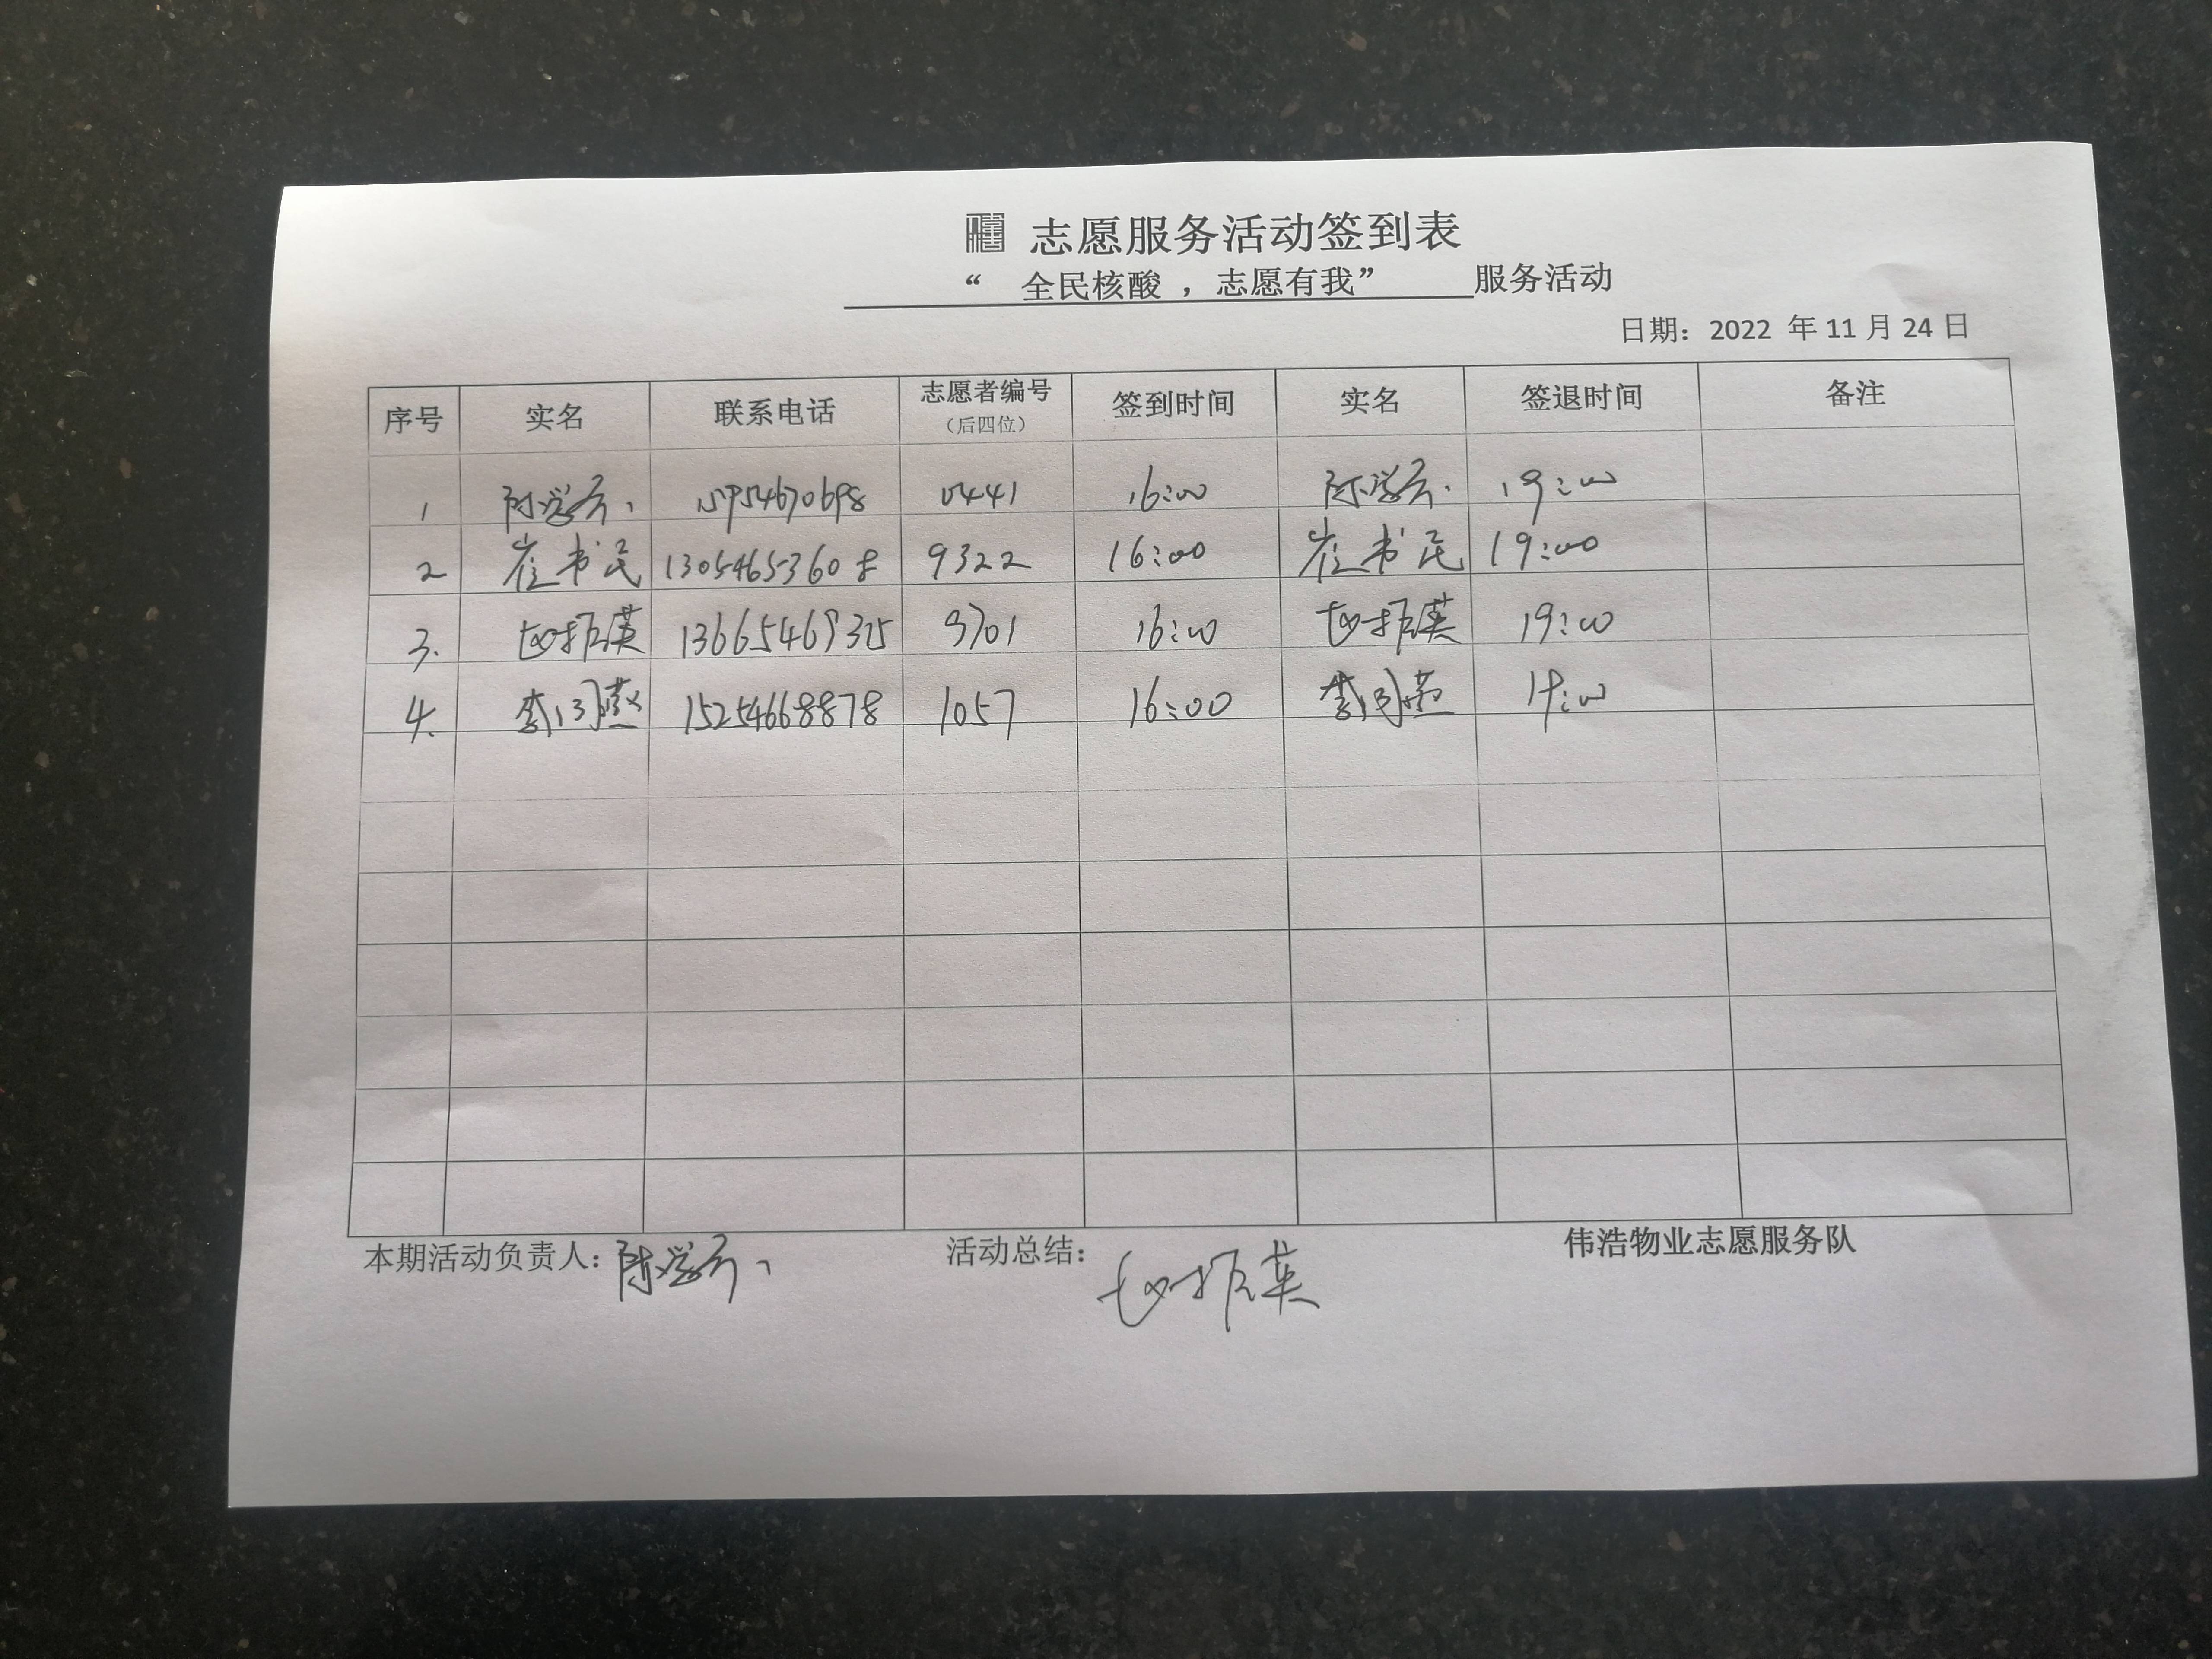 志愿服务活动签到表
“ 全民核酸 ，志愿有我” 服务活动
日期：2022 年 11 月 24 日
序号 实名 联系电话 志愿者编号（后四位） 签到时间 实名 签退时间 备注
1 15954670698 0441 16:00 19:00
2 崔书民 13054653608 9322 16:00 崔书民 19:00
3. 赵振英 13665469325 9701 16:00 赵振英 19:00
4. 15254668878 1057 16:00 19:00
本期活动负责人： 活动总结：赵振英 伟浩物业志愿服务队